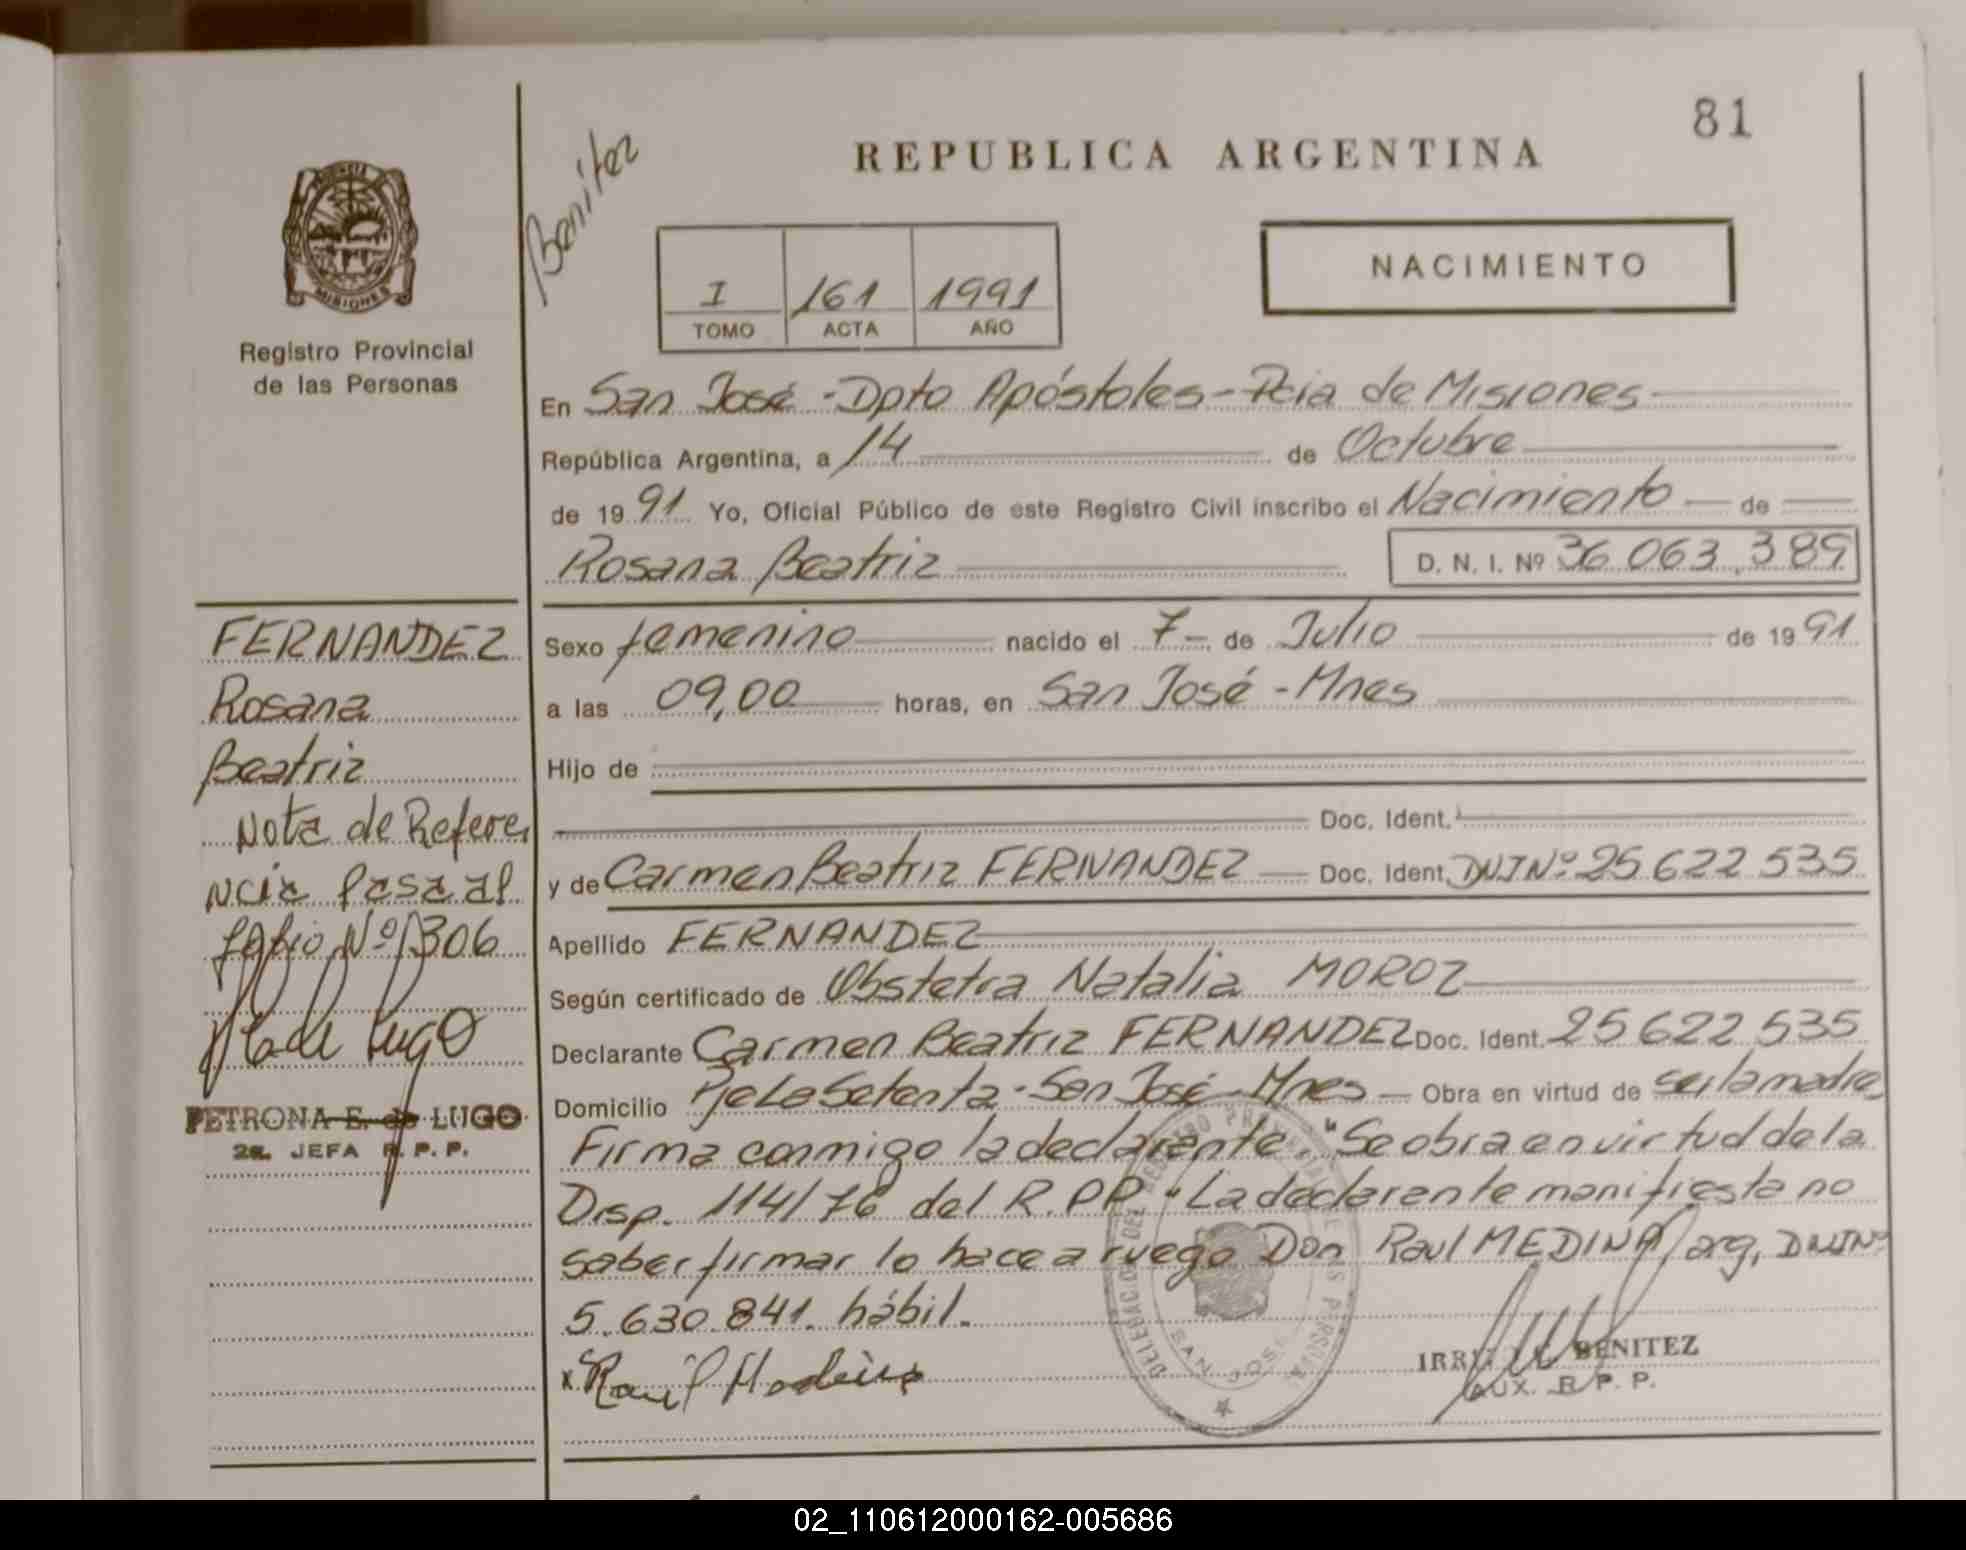 81
REPUBLICA ARGENTINA
Benitez
PROVINCIA
MISIONES
Registro Provincial
de las Personas
I 161 1991
TOMO ACTA AÑO
NACIMIENTO
En San José - Dpto Apóstoles - Pcia de Misiones
República Argentina, a 14 de Octubre
de 1991 Yo, Oficial Público de este Registro Civil inscribo el Nacimiento de
Rosana Beatriz D. N. I. Nº 36.063.389
Sexo femenino nacido el 7 de Julio de 1991
a las 09,00 horas, en San José - Mnes
Hijo de
Doc. Ident.
y de Carmen Beatriz FERNANDEZ Doc. Ident. DNI Nº 25.622.535
Apellido FERNANDEZ
Según certificado de Obstetra Natalia MOROZ
Declarante Carmen Beatriz FERNANDEZ Doc. Ident. 25.622.535
Domicilio San José - Mnes Obra en virtud de ser la madre
Firma conmigo la declarante. "Se obra en virtud de la
Disp. 114/76 del R.P.P. "La declarente manifiesta no
saber firmar lo hace a ruego Don Raul MEDINA, arg, DNI Nº
5.630.841. hábil.
x
BENITEZ
AUX. R. P. P.
SAN JOSE
FERNANDEZ
Rosana
Beatriz
Nota de Refere
ncia pasa al
folio Nº 306
PETRONA E. de LUGO
2a. JEFA R. P. P.
02_110612000162-005686